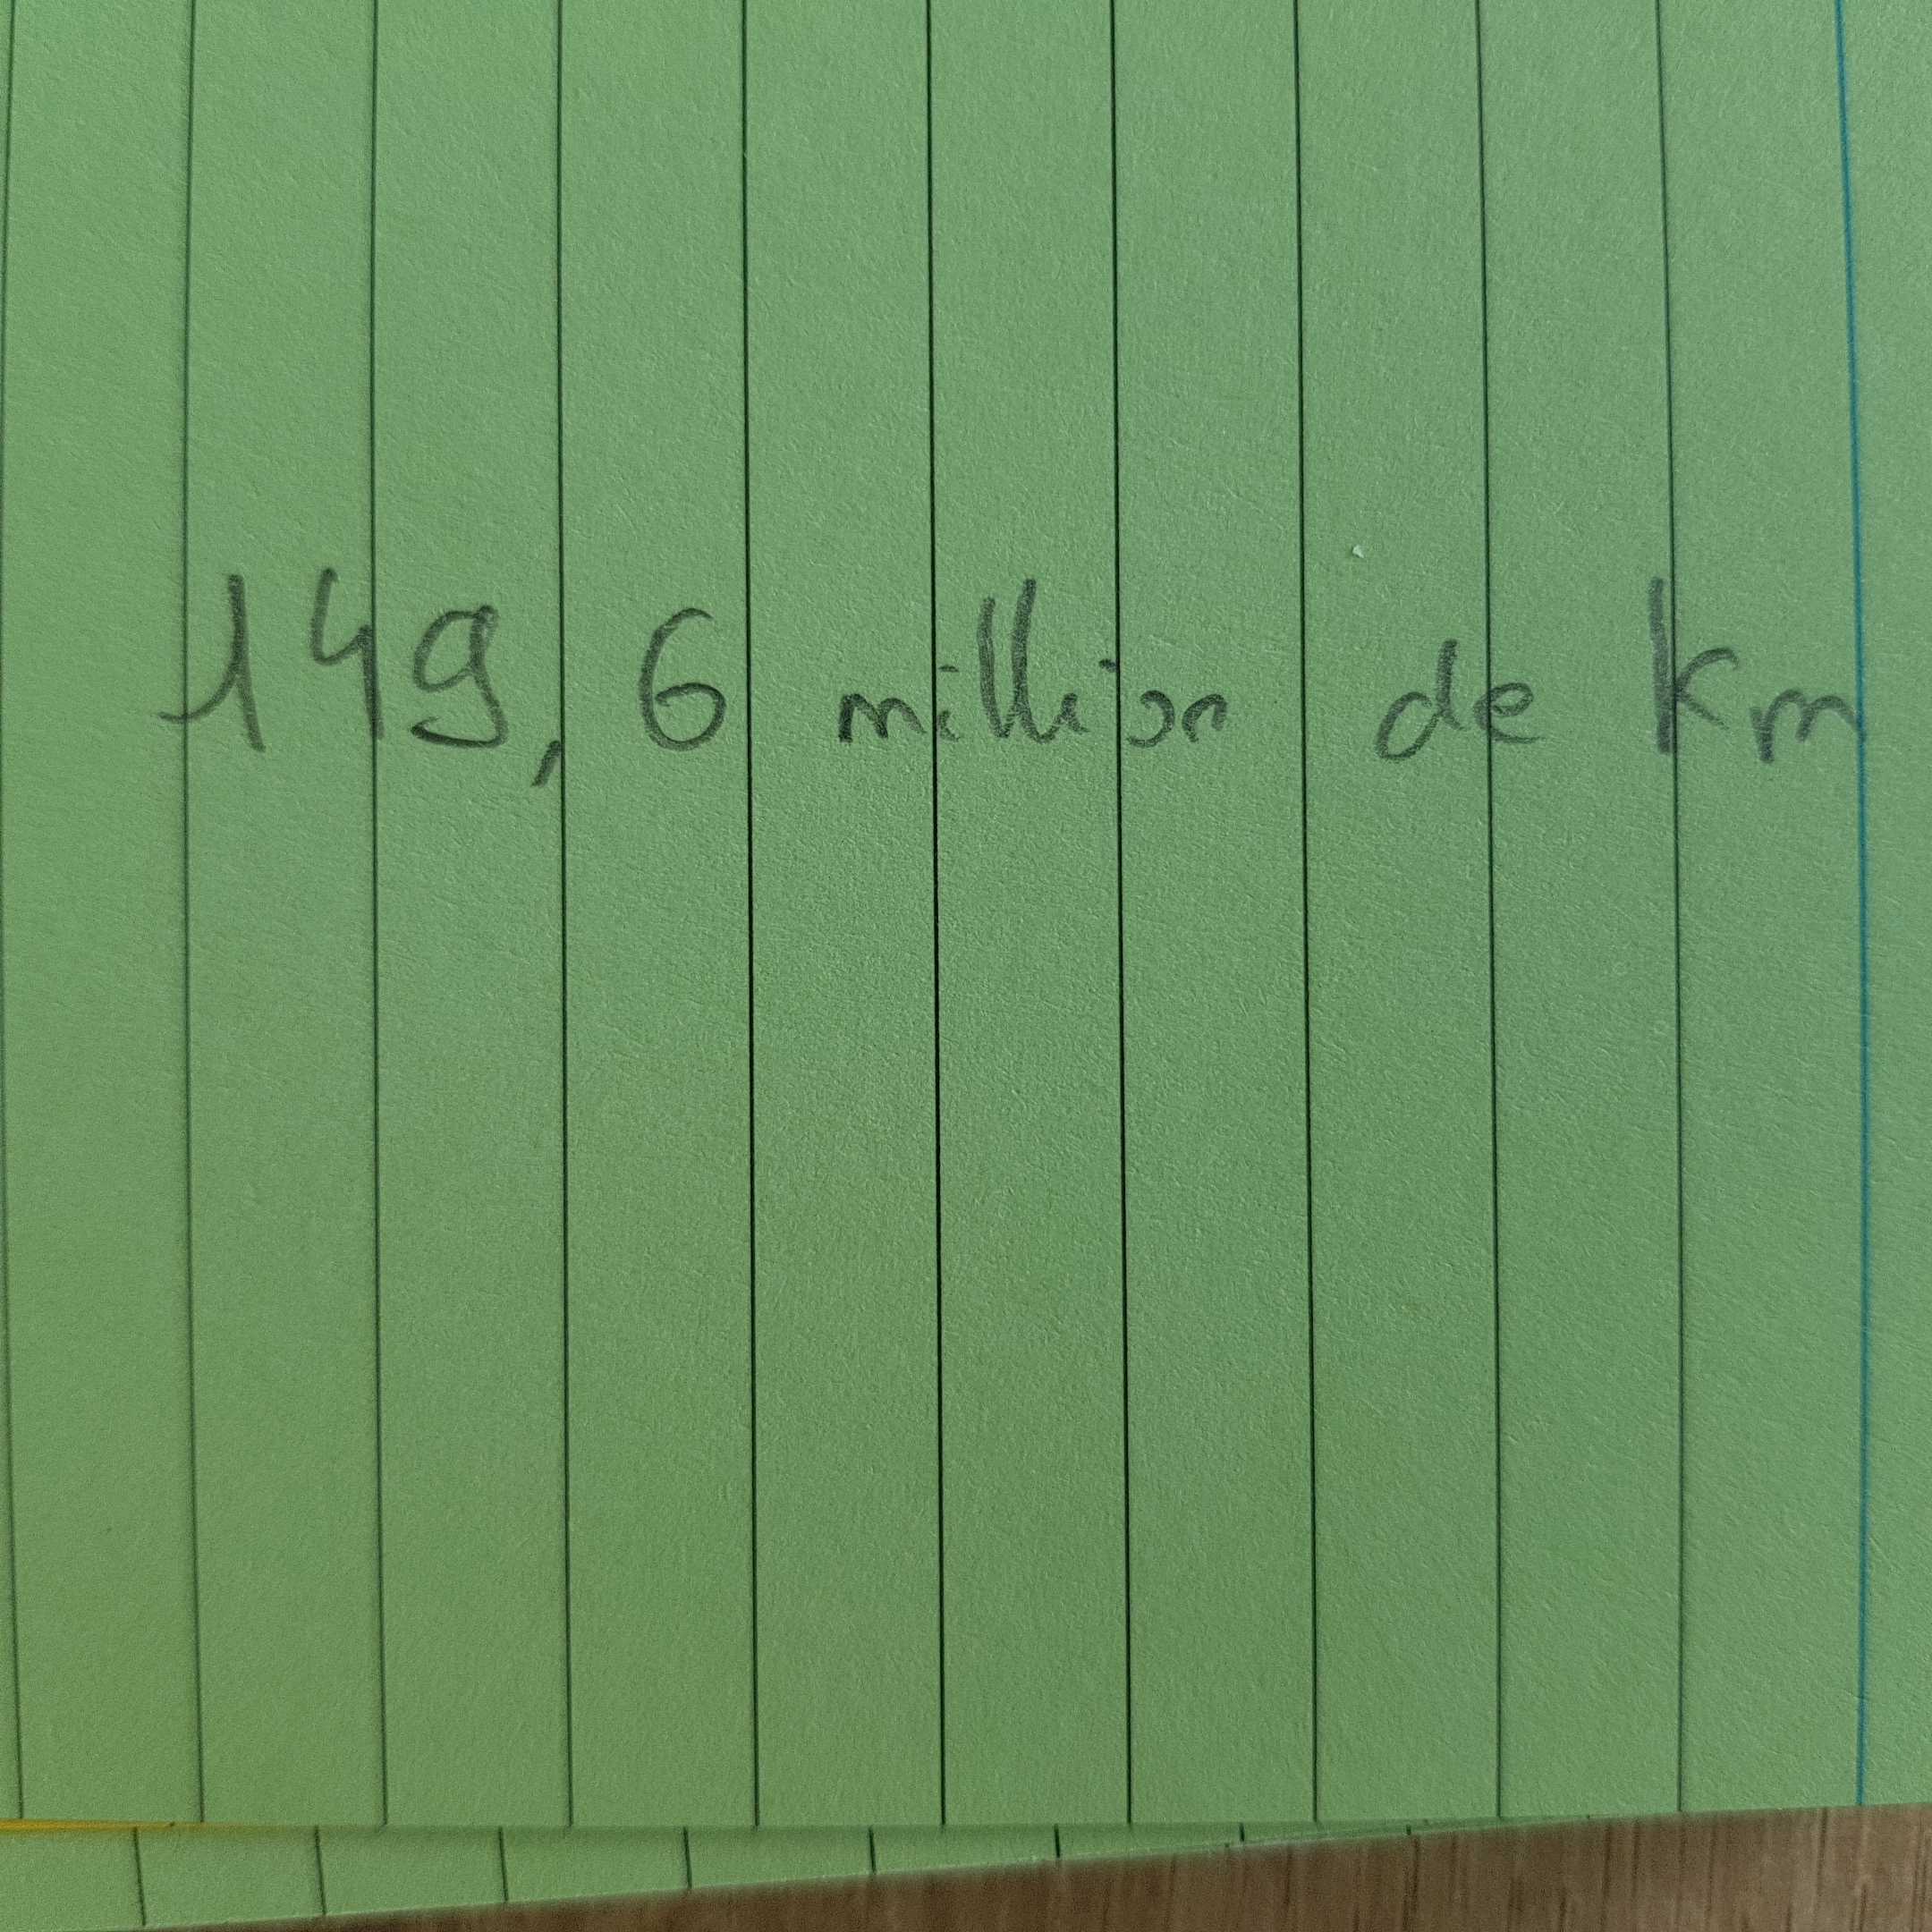 149, 6 million de km